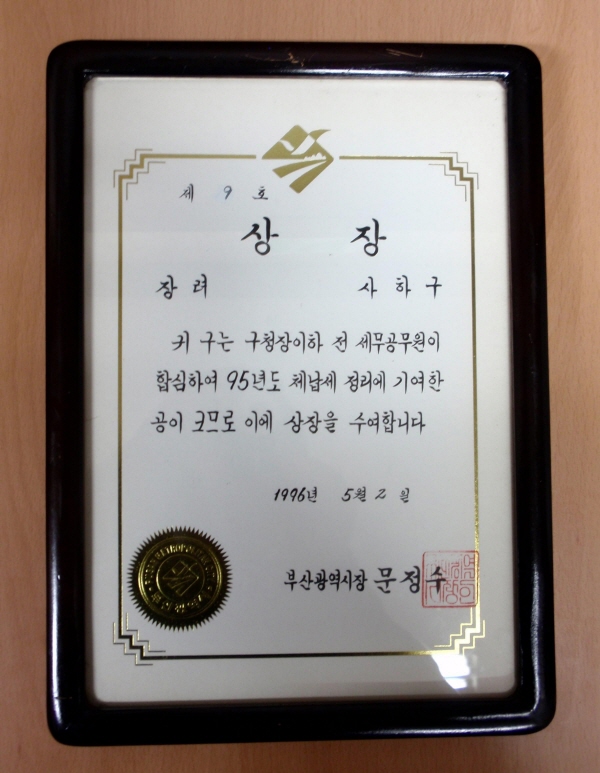 제 9 호
상 장
장 려 사 하 구
귀 구는 구청장이하 전 세무공무원이
합심하여 95년도 체납세 정리에 기여한
공이 크므로 이에 상장을 수여합니다
1996년 5월 2 일
부산광역시장 문정수